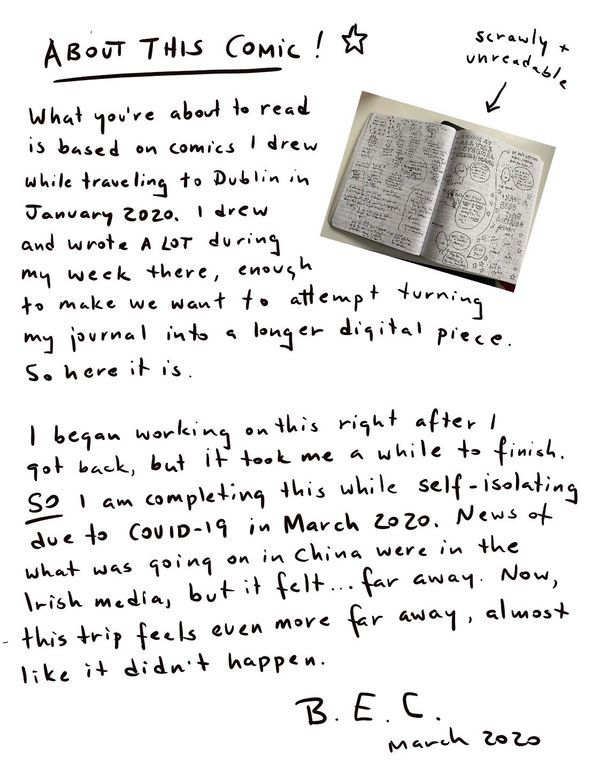 ABOUT THIS COMIC!
scrawly +
unreadable
What you're about to read
is based on comics I drew
while traveling to Dublin in
January 2020. I drew
and wrote A LOT during
my week there, enough
to make we want to attempt turning
my journal into a longer digital piece.
So here it is.
I began working on this right after I
got back, but it took me a while to finish.
SO I am completing this while self-isolating
due to COVID-19 in March 2020. News of
what was going on in China were in the
Irish media, but it felt... far away. Now,
this trip feels even more far away, almost
like it didn't happen.
B. E. C.
March 2020